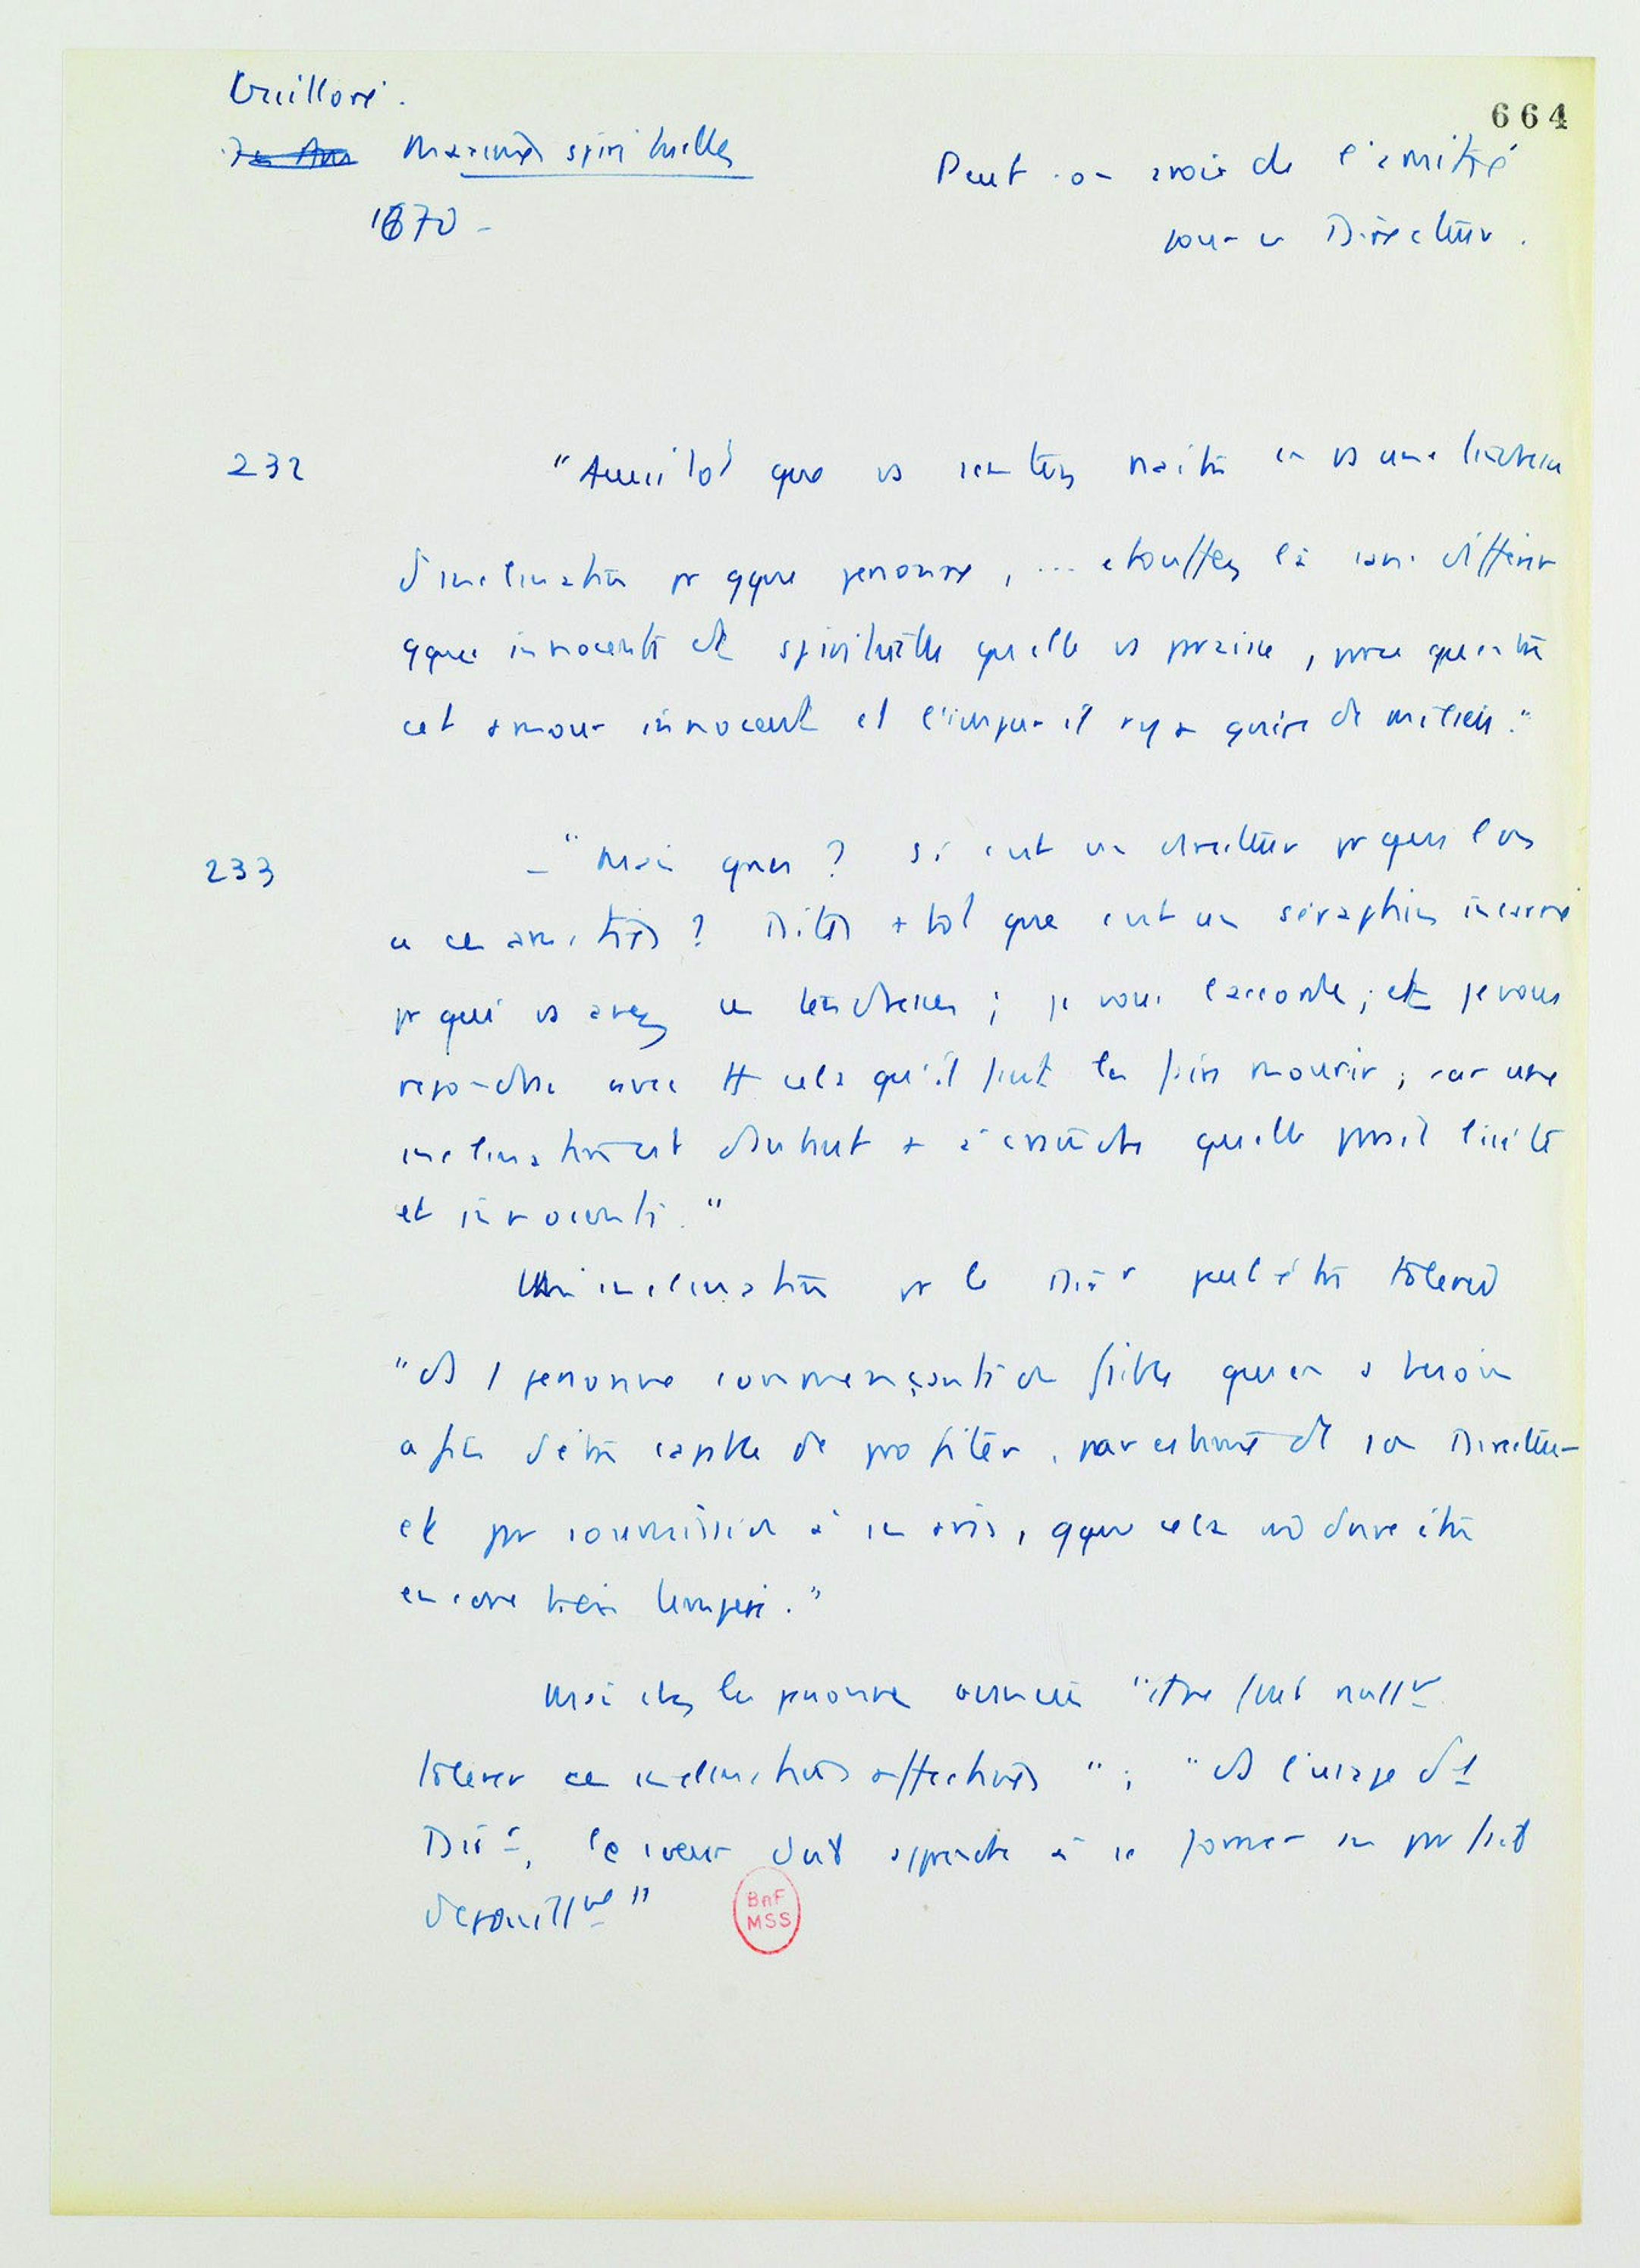 Guilloré.
664
Maximes spirituelles
Peut-on avoir de l'amitié
1670 -
pour un Directeur.
232 "Aussitôt que vs sentez naître en vs une tendresse
d'inclination pr qque personne, ... étouffez la sans différer
qque innocente et spirituelle qu'elle vs paraisse, parce qu'entre
cet amour innocent et l'impur il n'y a guère de milieu."
233 - "Mais quoi? Si c'est un directeur pr qui l'on
a ces amitiés? Dites + tôt que c'est un séraphin incarné
pr qui vs avez ces tendresses; je vous l'accorde; et je vous
avec tt cela qu'il faut les faire mourir; car une
inclination est d'autant + à craindre qu'elle paraît licite
et innocente."
Une inclination pr le Dir peut être tolérée
"ds 1 personne commençante et faible qui en a besoin
afin d'être capable de profiter, par estime de son Directeur
et par soumission à ses avis, qque cela ne doive être
encore bien tempéré."
Mais chez les personnes avancées
tolérer ces inclinations affectives"; "ds l'usage d'1
Dirr, le coeur doit apprendre à se former un parfait
dépouillmt"
BnF
MSS